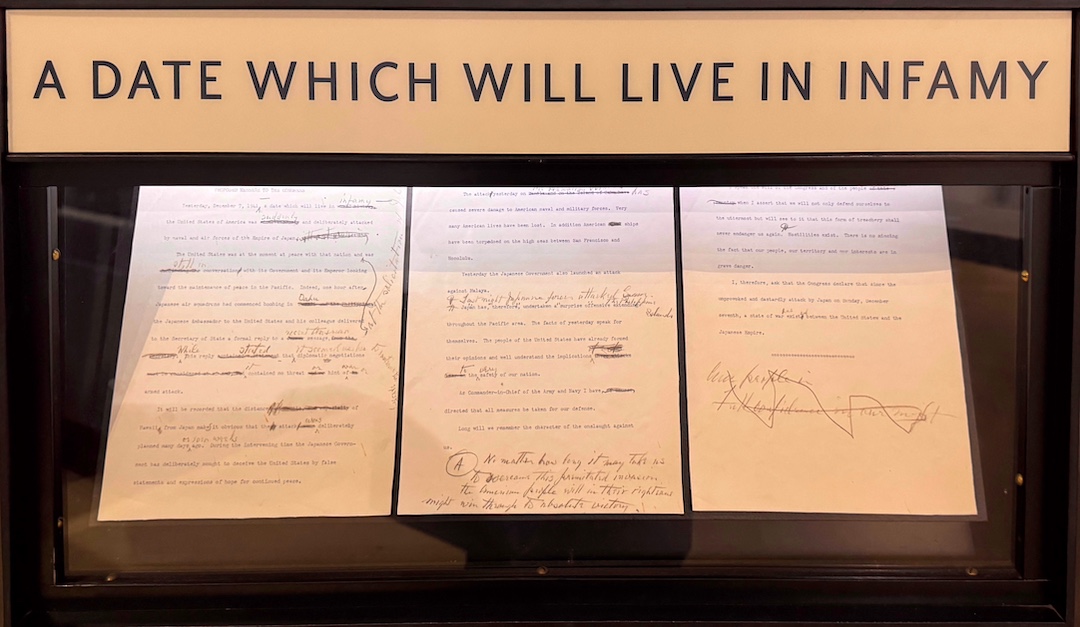 A DATE WHICH WILL LIVE IN INFAMY
MESSAGE TO THE
infamy
Yesterday, December 7, 1941, a date which will live in
suddenly
the United States of America was and deliberately attacked
by naval and air forces of the Empire of Japan
The United States was at the moment at peace with that nation and was
still in
conversations with its Government and its Emperor looking
toward the maintenance of peace in the Pacific. Indeed, one hour after
Oahu
Japanese air squadrons had commenced bombing in
the Japanese Ambassador to the United States and his colleague delivered
to the Secretary of State a formal reply to a message,
While stated it seemed useless
This reply that diplomatic negotiations
it or
contained no threat hint of
armed attack.
It will be recorded that the distance
of Hawaii from Japan makes it obvious that the attack was deliberately
or even weeks
planned many days ago. During the intervening time the Japanese Govern-
ment has deliberately sought to deceive the United States by false
statements and expressions of hope for continued peace.
at the solicitation of Japan
The attack yesterday on has
caused severe damage to American naval and military forces. Very
many American lives have been lost. In addition American ships
have been torpedoed on the high seas between San Francisco and
Honolulu.
Yesterday the Japanese Government also launched an attack
against Malaya.
Last night Japanese forces attacked Guam
Japan has, therefore, undertaken a surprise offensive
throughout the Pacific area. The facts of yesterday speak for
themselves. The people of the United States have already formed
their opinions and well understand the implications
to very
the safety of our nation.
As Commander-in-Chief of the Army and Navy I have,
directed that all measures be taken for our defense.
Long will we remember the character of the onslaught against
us.
A No matter how long it may take us
to overcome this premeditated invasion
the American people will in their righteous
might win through to absolute victory.
I assert that we will not only defend ourselves to
the uttermost but will see to it that this form of treachery shall
never endanger us again. Hostilities exist. There is no mincing
the fact that our people, our territory and our interests are in
grave danger.
I, therefore, ask that the Congress declare that since the
unprovoked and dastardly attack by Japan on Sunday, December
seventh, a state of war has existed between the United States and the
Japanese Empire.